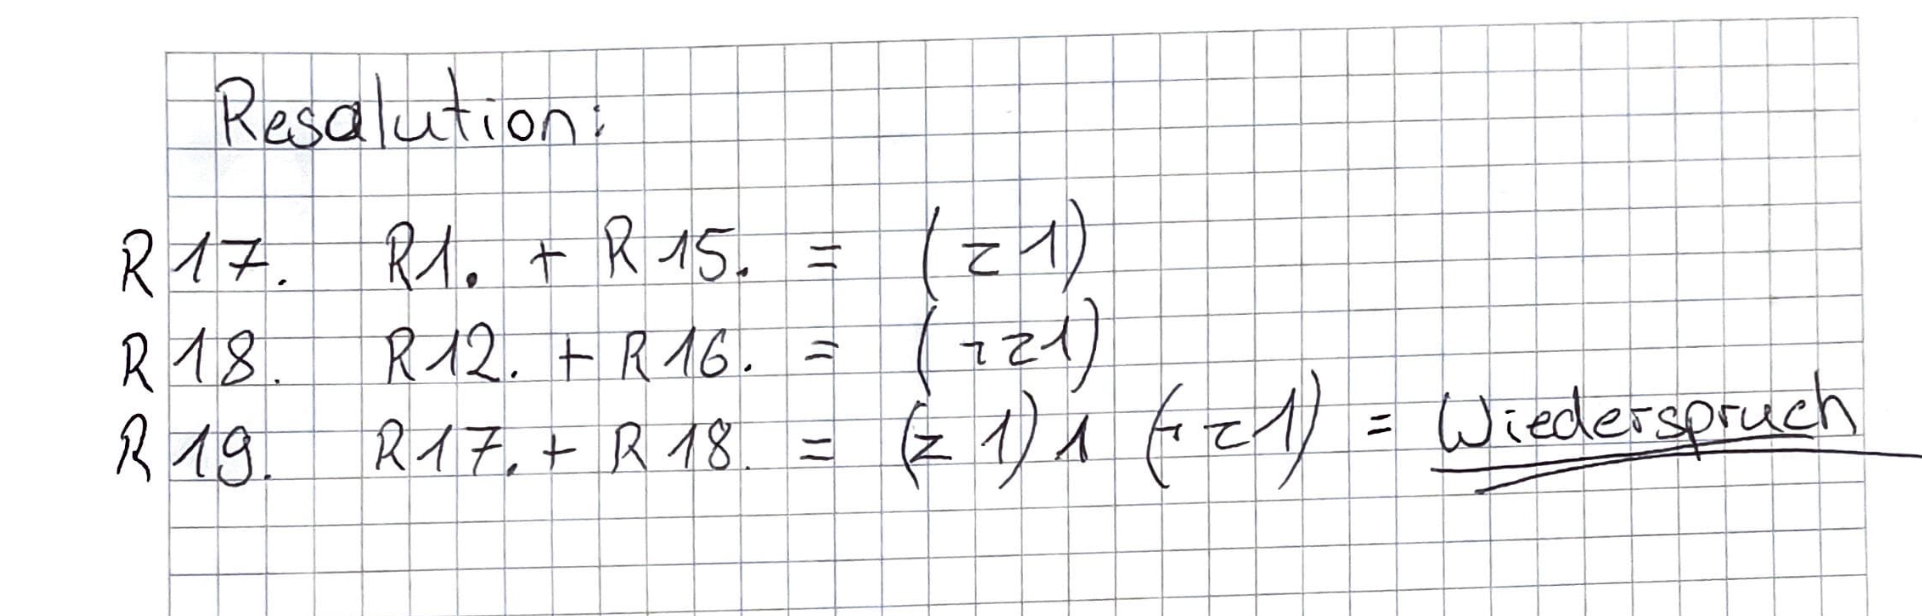 Resalution:
R17. R1. + R15. = (z1)
R18. R12. + R16. = (¬z1)
R19. R17. + R18. = (z1) ∧ (¬z1) = Wiederspruch